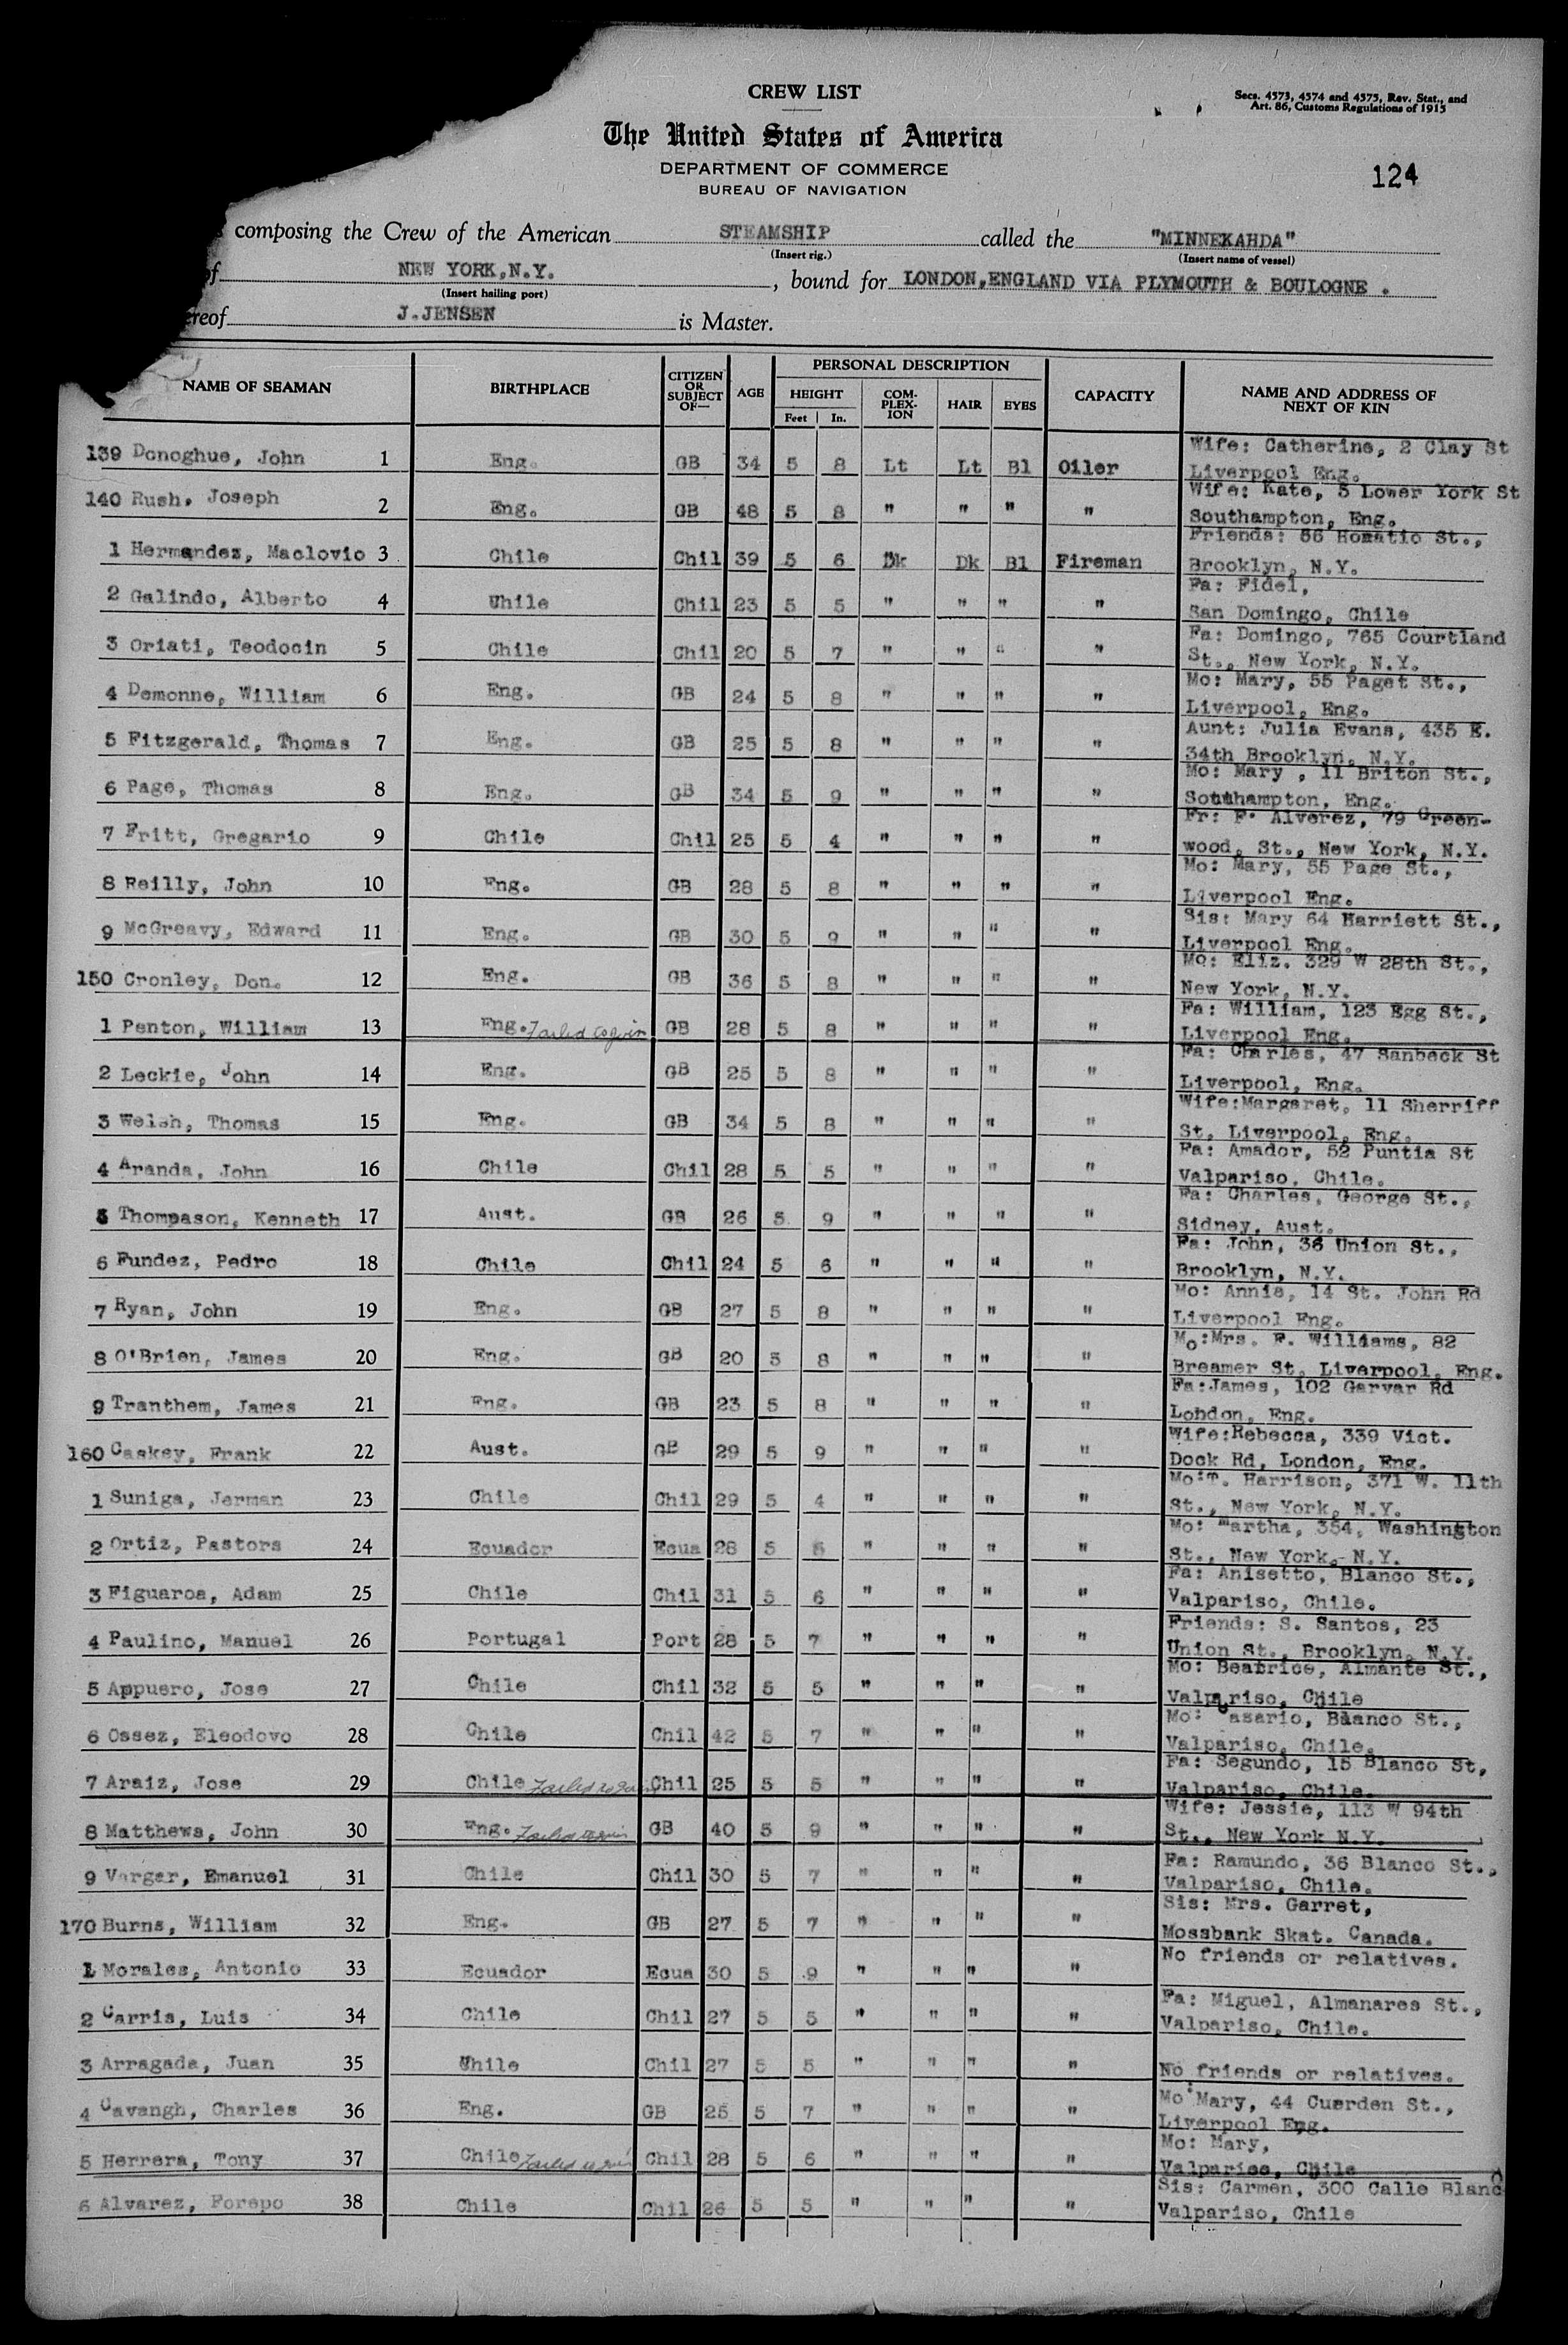 CREW LIST
Secs. 4573, 4574 and 4575, Rev. Stat., and
Art. 86, Customs Regulations of 1915
The United States of America
DEPARTMENT OF COMMERCE
BUREAU OF NAVIGATION
124
composing the Crew of the American STEAMSHIP called the "MINNEKAHDA"
(Insert rig.) (Insert name of vessel)
of NEW YORK,N.Y. , bound for LONDON,ENGLAND VIA PLYMOUTH & BOULOGNE .
(Insert hailing port)
ereof J.JENSEN is Master.
NAME OF SEAMAN BIRTHPLACE CITIZEN OR SUBJECT OF— AGE PERSONAL DESCRIPTION HEIGHT Feet In. COM-PLEX-ION HAIR EYES CAPACITY NAME AND ADDRESS OF NEXT OF KIN
139 Donoghue, John 1 Eng. GB 34 5 8 Lt Lt Bl Oiler Wife: Catherine, 2 Clay St
Liverpool Eng.
140 Rush. Joseph 2 Eng. GB 48 5 8 " " " " Wife: Kate, 3 Lower York St
Southampton, Eng.
1 Hernandez, Maclovio 3 Chile Chil 39 5 6 Dk Dk Bl Fireman Friends: 66 Horatio St.,
Brooklyn, N.Y.
2 Galindo, Alberto 4 Uhile Chil 23 5 5 " " " " Fa: Fidel,
San Domingo, Chile
3 Oriati, Teodocin 5 Chile Chil 20 5 7 " " " " Fa: Domingo, 765 Courtland
St., New York, N.Y.
4 Demonne, William 6 Eng. GB 24 5 8 " " " " Mo: Mary, 55 Paget St.,
Liverpool, Eng.
5 Fitzgerald, Thomas 7 Eng. GB 25 5 8 " " " " Aunt: Julia Evans, 435 E.
34th Brooklyn, N.Y.
6 Page, Thomas 8 Eng. GB 34 5 9 " " " " Mo: Mary , 11 Briton St.,
Southampton, Eng.
7 Fritt, Gregario 9 Chile Chil 25 5 4 " " " " Fr: F. Alverez, 79 Green-
wood, St., New York, N.Y.
8 Reilly, John 10 Eng. GB 28 5 8 " " " " Mo: Mary, 55 Page St.,
Liverpool Eng.
9 McGreavy, Edward 11 Eng. GB 30 5 9 " " " " Sis: Mary 64 Harriett St.,
Liverpool Eng.
150 Cronley, Don. 12 Eng. GB 36 5 8 " " " " Mo: Eliz. 329 W 28th St.,
New York, N.Y.
1 Penton, William 13 Eng. Failed to join GB 28 5 8 " " " " Fa: William, 123 Egg St.,
Liverpool Eng.
2 Leckie, John 14 Eng. GB 25 5 8 " " " " Fa: Charles, 47 Sanbeck St
Liverpool, Eng.
3 Welsh, Thomas 15 Eng. GB 34 5 8 " " " " Wife:Margaret, 11 Sherriff
St, Liverpool, Eng.
4 Aranda, John 16 Chile Chil 28 5 5 " " " " Fa: Amador, 52 Puntia St
Valpariso, Chile.
5 Thompason, Kenneth 17 Aust. GB 26 5 9 " " " " Fa: Charles, George St.,
Sidney, Aust.
6 Fundez, Pedro 18 Chile Chil 24 5 6 " " " " Fa: John, 36 Union St.,
Brooklyn, N.Y.
7 Ryan, John 19 Eng. GB 27 5 8 " " " " Mo: Annie, 14 St. John Rd
Liverpool Eng.
8 O'Brien, James 20 Eng. GB 20 5 8 " " " " Mo:Mrs. F. Williams, 82
Breamer St, Liverpool, Eng.
9 Tranthem, James 21 Eng. GB 23 5 8 " " " " Fa:James, 102 Garvar Rd
London, Eng.
160 Caskey, Frank 22 Aust. GB 29 5 9 " " " " Wife:Rebecca, 339 Vict.
Dock Rd, London, Eng.
1 Suniga, Jerman 23 Chile Chil 29 5 4 " " " " Mo:T. Harrison, 371 W. 11th
St., New York, N.Y.
2 Ortiz, Pastors 24 Ecuador Ecua 28 5 " " " " Mo: Martha, 354, Washington
St., New York, N.Y.
3 Figuaroa, Adam 25 Chile Chil 31 5 6 " " " " Fa: Anisetto, Blanco St.,
Valpariso, Chile.
4 Paulino, Manuel 26 Portugal Port 28 5 7 " " " " Friends: S. Santos, 23
Union St., Brooklyn, N.Y.
5 Appuero, Jose 27 Chile Chil 32 5 5 " " " " Mo: Beatrice, Almante St.,
Valpariso, Chile
6 Ossez, Eleodovo 28 Chile Chil 42 5 7 " " " " Mo: Casario, Blanco St.,
Valpariso, Chile.
7 Araiz, Jose 29 Chile Failed to join Chil 25 5 5 " " " " Fa: Segundo, 15 Blanco St,
Valpariso, Chile.
8 Matthews, John 30 Eng. Failed to join GB 40 5 9 " " " " Wife: Jessie, 113 W 94th
St., New York N.Y.
9 Vargar, Emanuel 31 Chile Chil 30 5 7 " " " " Fa: Ramundo, 36 Blanco St.,
Valpariso, Chile.
170 Burns, William 32 Eng. GB 27 5 7 " " " " Sis: Mrs. Garret,
Mossbank Skat. Canada.
1 Morales, Antonio 33 Ecuador Ecua 30 5 9 " " " " No friends or relatives.
2 Carris, Luis 34 Chile Chil 27 5 5 " " " " Fa: Miguel, Almanares St.,
Valpariso, Chile.
3 Arragada, Juan 35 Uhile Chil 27 5 5 " " " " No friends or relatives.
4 Cavangh, Charles 36 Eng. GB 25 5 7 " " " " Mo:Mary, 44 Cuerden St.,
Liverpool Eng.
5 Herrera, Tony 37 Chile Failed to join Chil 28 5 6 " " " " Mo: Mary,
Valpariso, Chile
6 Alvarez, Forepo 38 Chile Chil 26 5 5 " " " " Sis: Carmen, 300 Calle Blanco
Valpariso, Chile